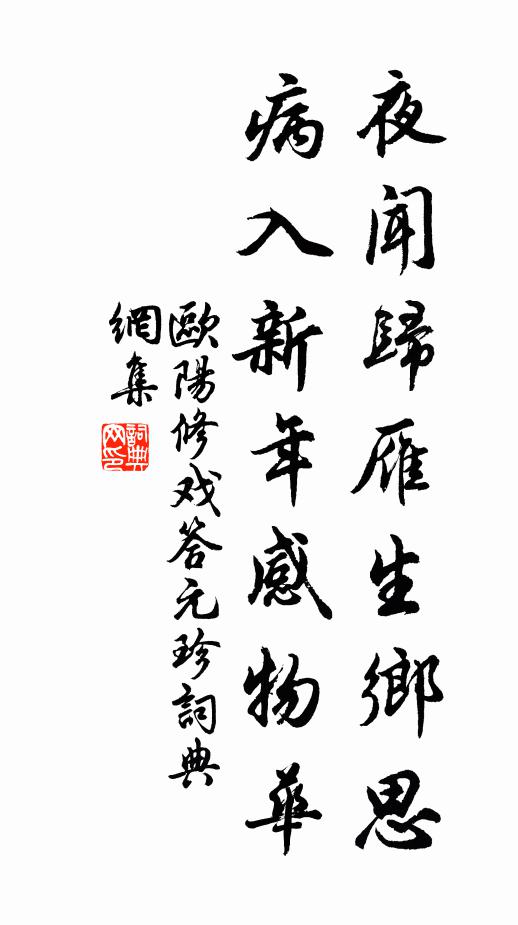 夜聞歸雁生鄉思
病入新年感物華
歐陽修戏答元珍詞典
網集
詞典
网印